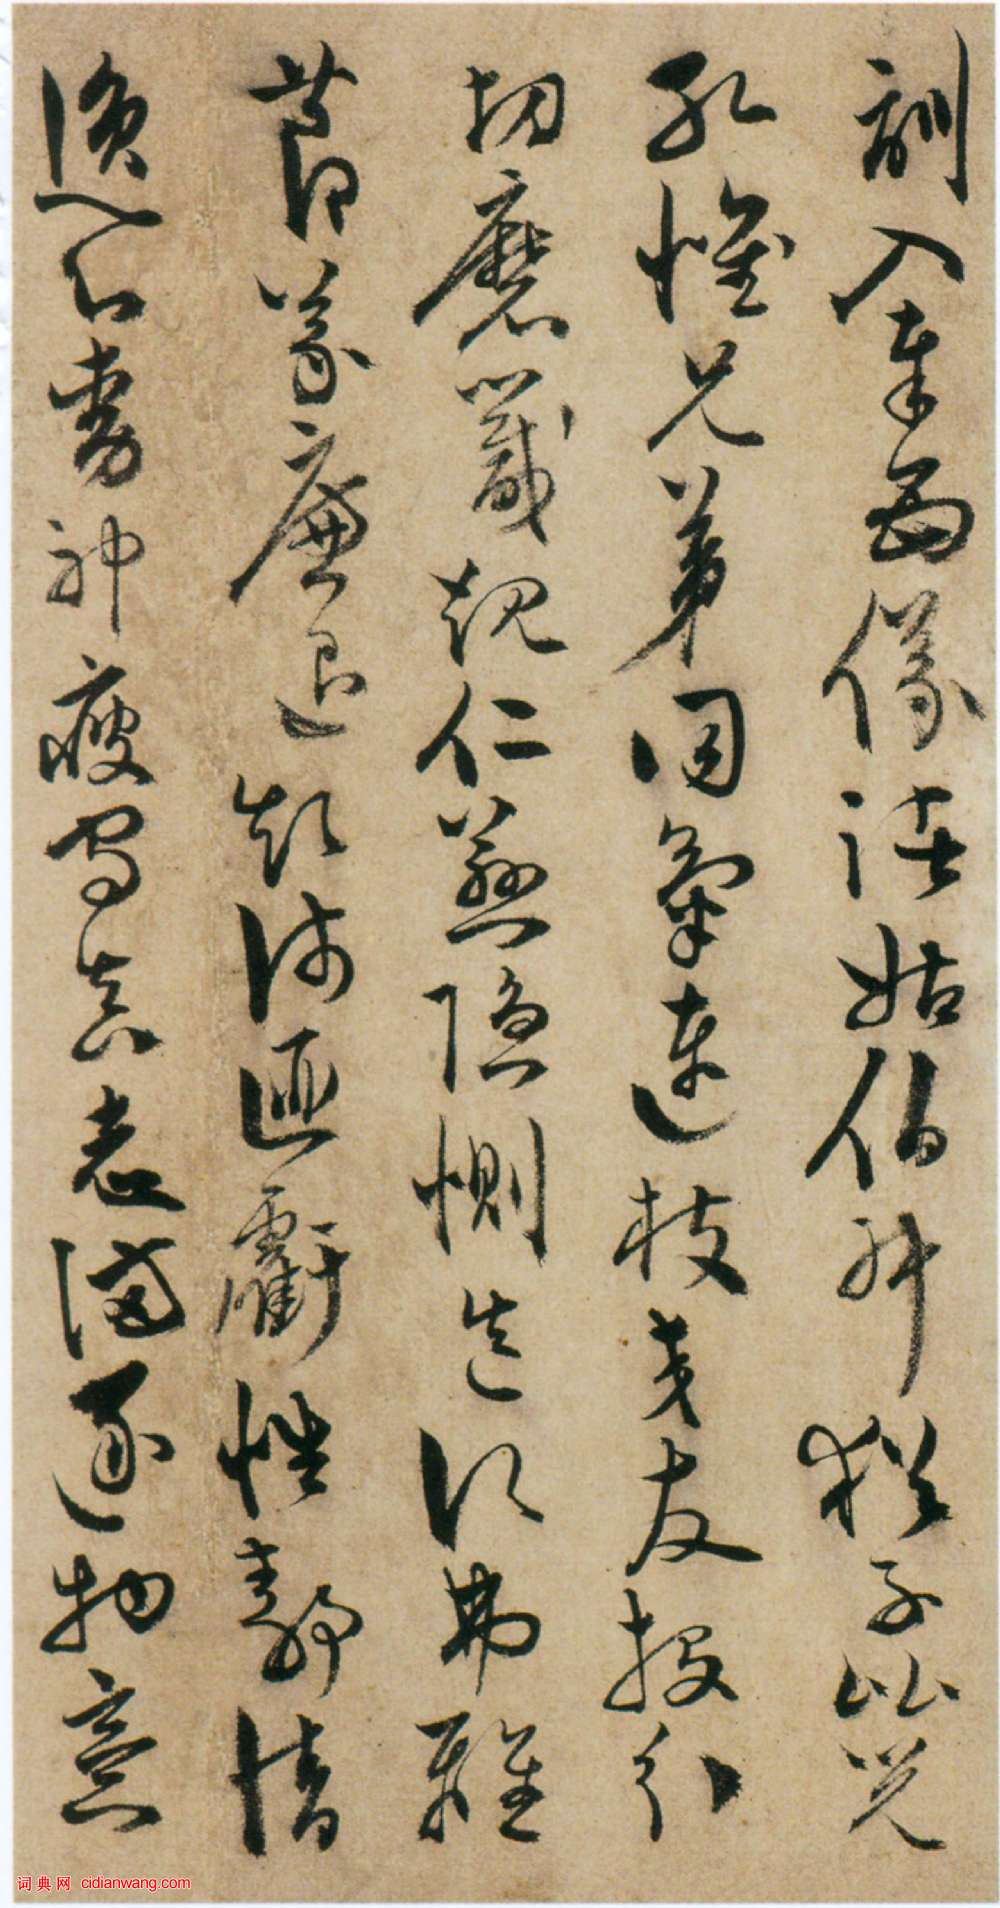 訓入奉母儀諸姑伯叔猶子比兒
孔懷兄弟同氣連枝交友投分
切磨箴規仁慈隱惻造次弗離
節義廉退顛沛匪虧性靜情
逸心動神疲守真志滿逐物意
词典网 cidianwang.com